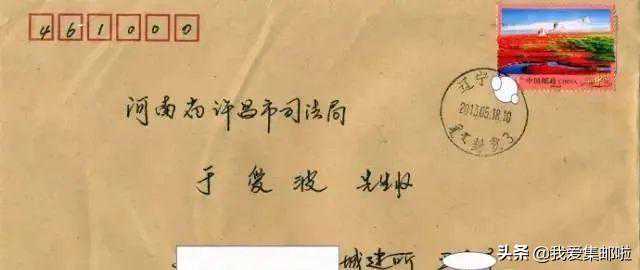 461000
中国邮政 CHINA
辽宁
2013.05.18.10
河南省许昌市司法局
于爱波 先生收
城建所
头条 @我爱集邮啦